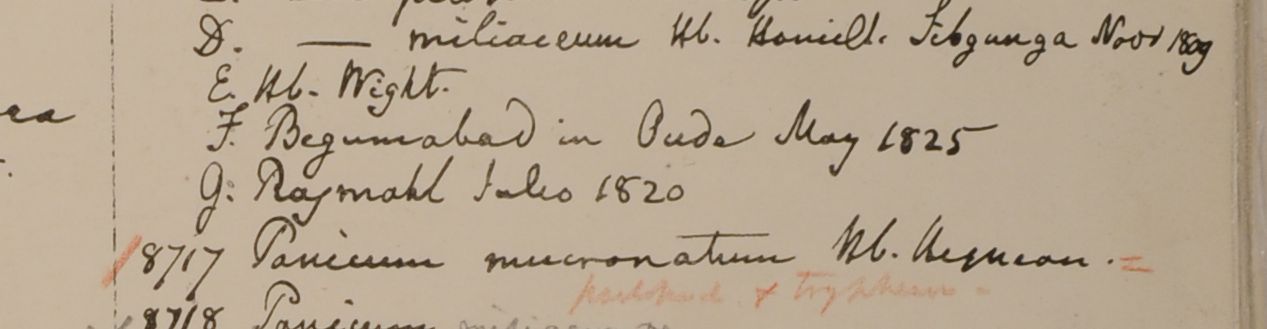 D. — miliaceum Hb. Hamilt. Novr 1809
ea
E. Hb. Wight.
F. Begumabad in Oude May 1825
G. Rajmahl Julio 1820
8717 Panicum mucronatum Hb. Heynean. =
8718 Panicum